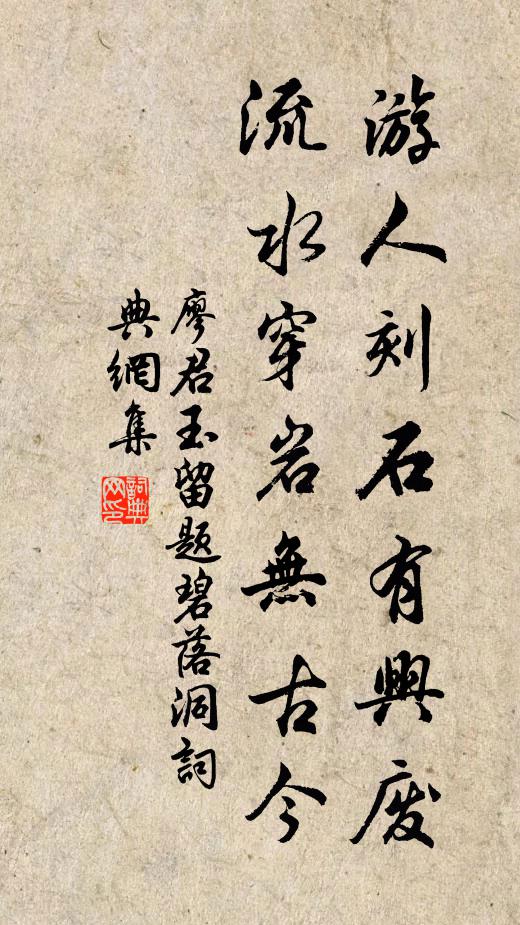 游人刻石有興废
流水穿岩無古今
廖君玉留题碧落洞詞
典網集
詞典
网印